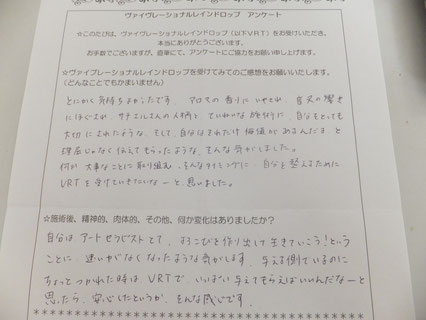 ヴァイヴレーショナルレインドロップ アンケート
☆このたびは、ヴァイヴレーショナルレインドロップ（以下VRT）をお受けいただき、
本当にありがとうございます。
お手数でございますが、直筆にて、アンケートにご協力をお願い申し上げます。
☆ヴァイブレーショナルレインドロップを受けてみてのご感想をお願いいたします。
（どんなことでもかまいません）
とにかく気持ちよかったです。アロマの香りにいやされ、音叉の響き
にほぐされ、サチエルさんの人柄と、ていねいな施術に、自分をとっても
大切にされたような、そして、自分はそれだけ価値があるんだよ と
理屈じゃなく伝えてもらったような、そんな気がしました。
何か大事なことに取り組む、そんなタイミングに、自分を整えるために
VRTを受けていきたいなーと思いました。
☆施術後、精神的、肉体的、その他、何か変化はありましたか？
自分は、アートセラピストとして、よろこびを作り出して生きていこう！という
ことに、迷いがなくなったような気がします。与える側でいるのに
ちょっとつかれた時は VRTで、いっぱい与えてもらえばいいんだなーと
思ったら、安心したというか、そんな感じです。